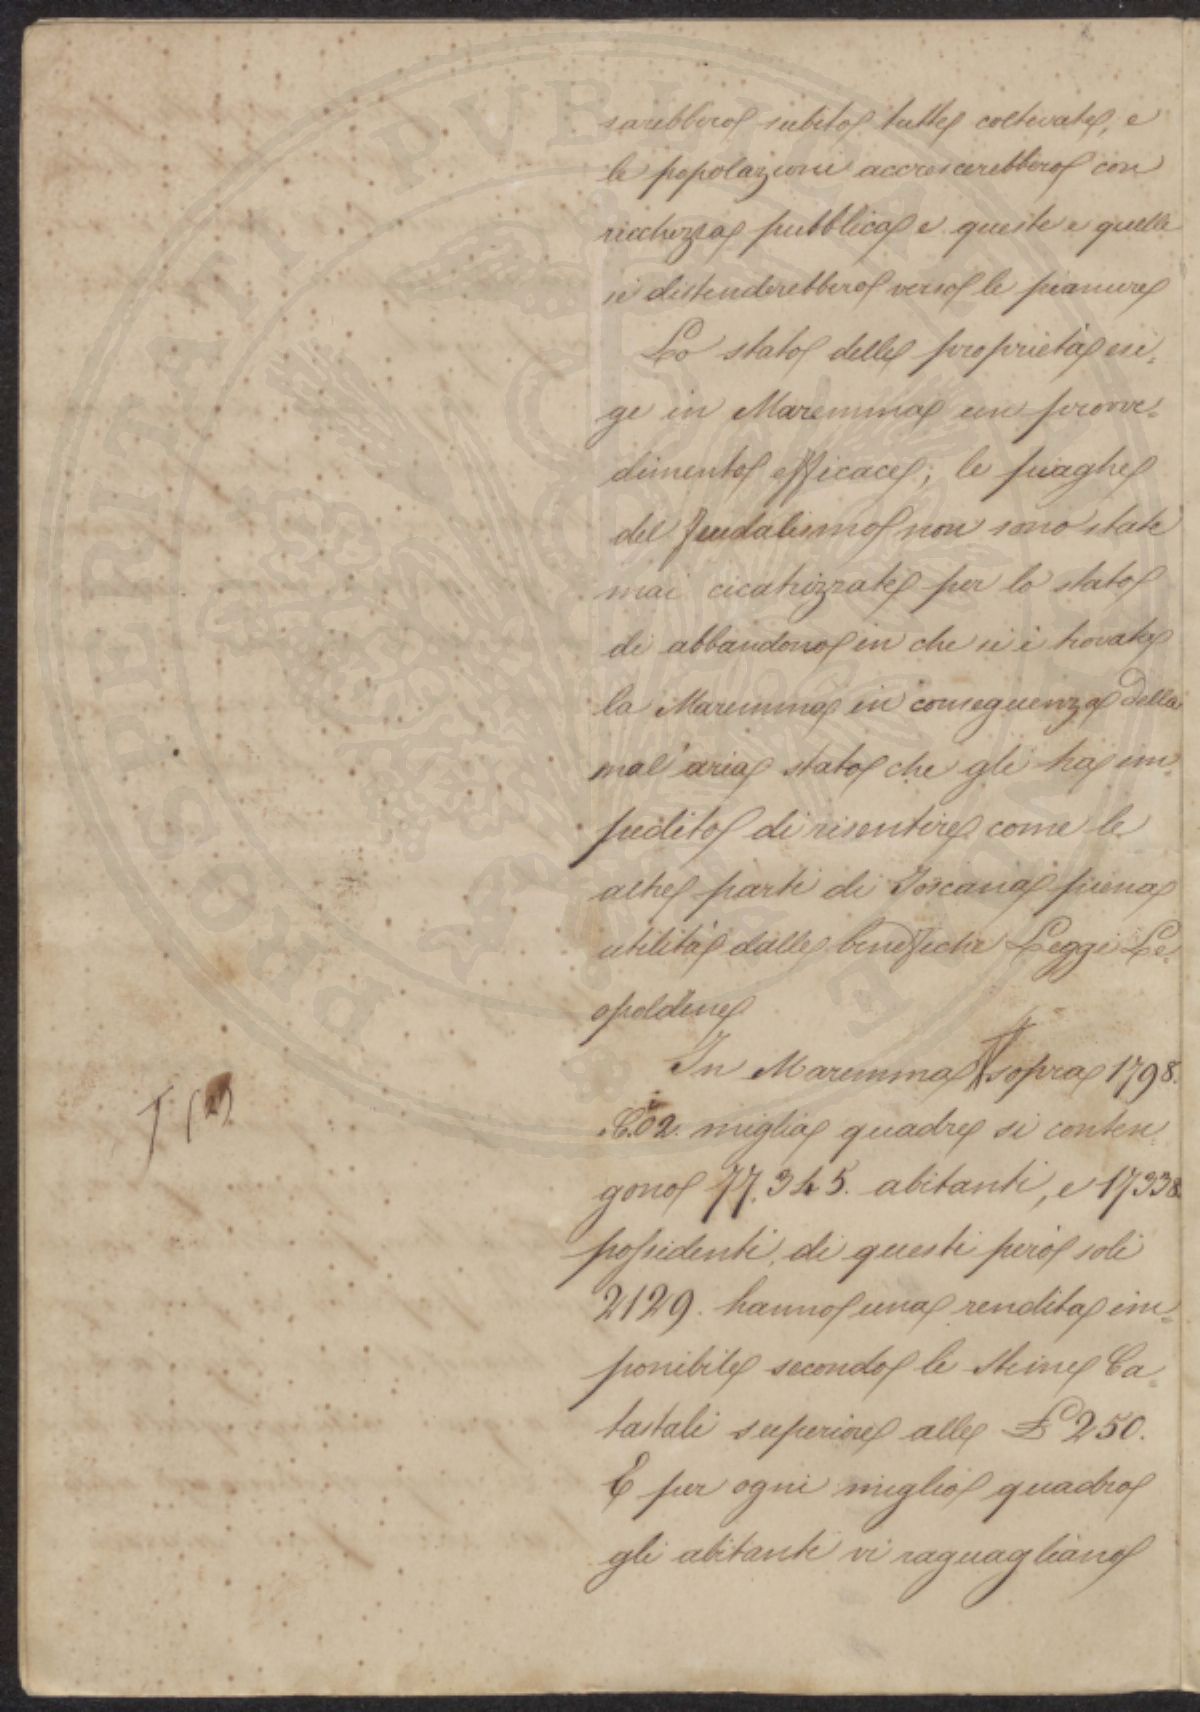 sarebbero subito tutte coltivate, e
le popolazioni accrescerebbero con
ricchezza pubblica e queste e quella
si distenderebbero verso le pianure
Lo stato delle proprietà esi=
ge in Maremma un provve=
dimento efficace; le piaghe
del feudalismo non sono state
mai cicatrizzate per lo stato
di abbandono in che si è trovata
la Maremma in conseguenza della
mal'aria stato che gli ha im=
pedito di risentire come le
altre parti di Toscana piena
utilità dalle benefiche Leggi Le=
opoldine
In Maremma sopra 1798.
02. miglia quadre si conten=
gono 77.345. abitanti, e 17338
possidenti, di questi però soli
2129. hanno una rendita im=
ponibile secondo le Stime Ca=
tastali superiore alle £ 250.
E per ogni miglio quadro
gli abitanti vi raguagliano
PROSPERITATI PVBLICAE